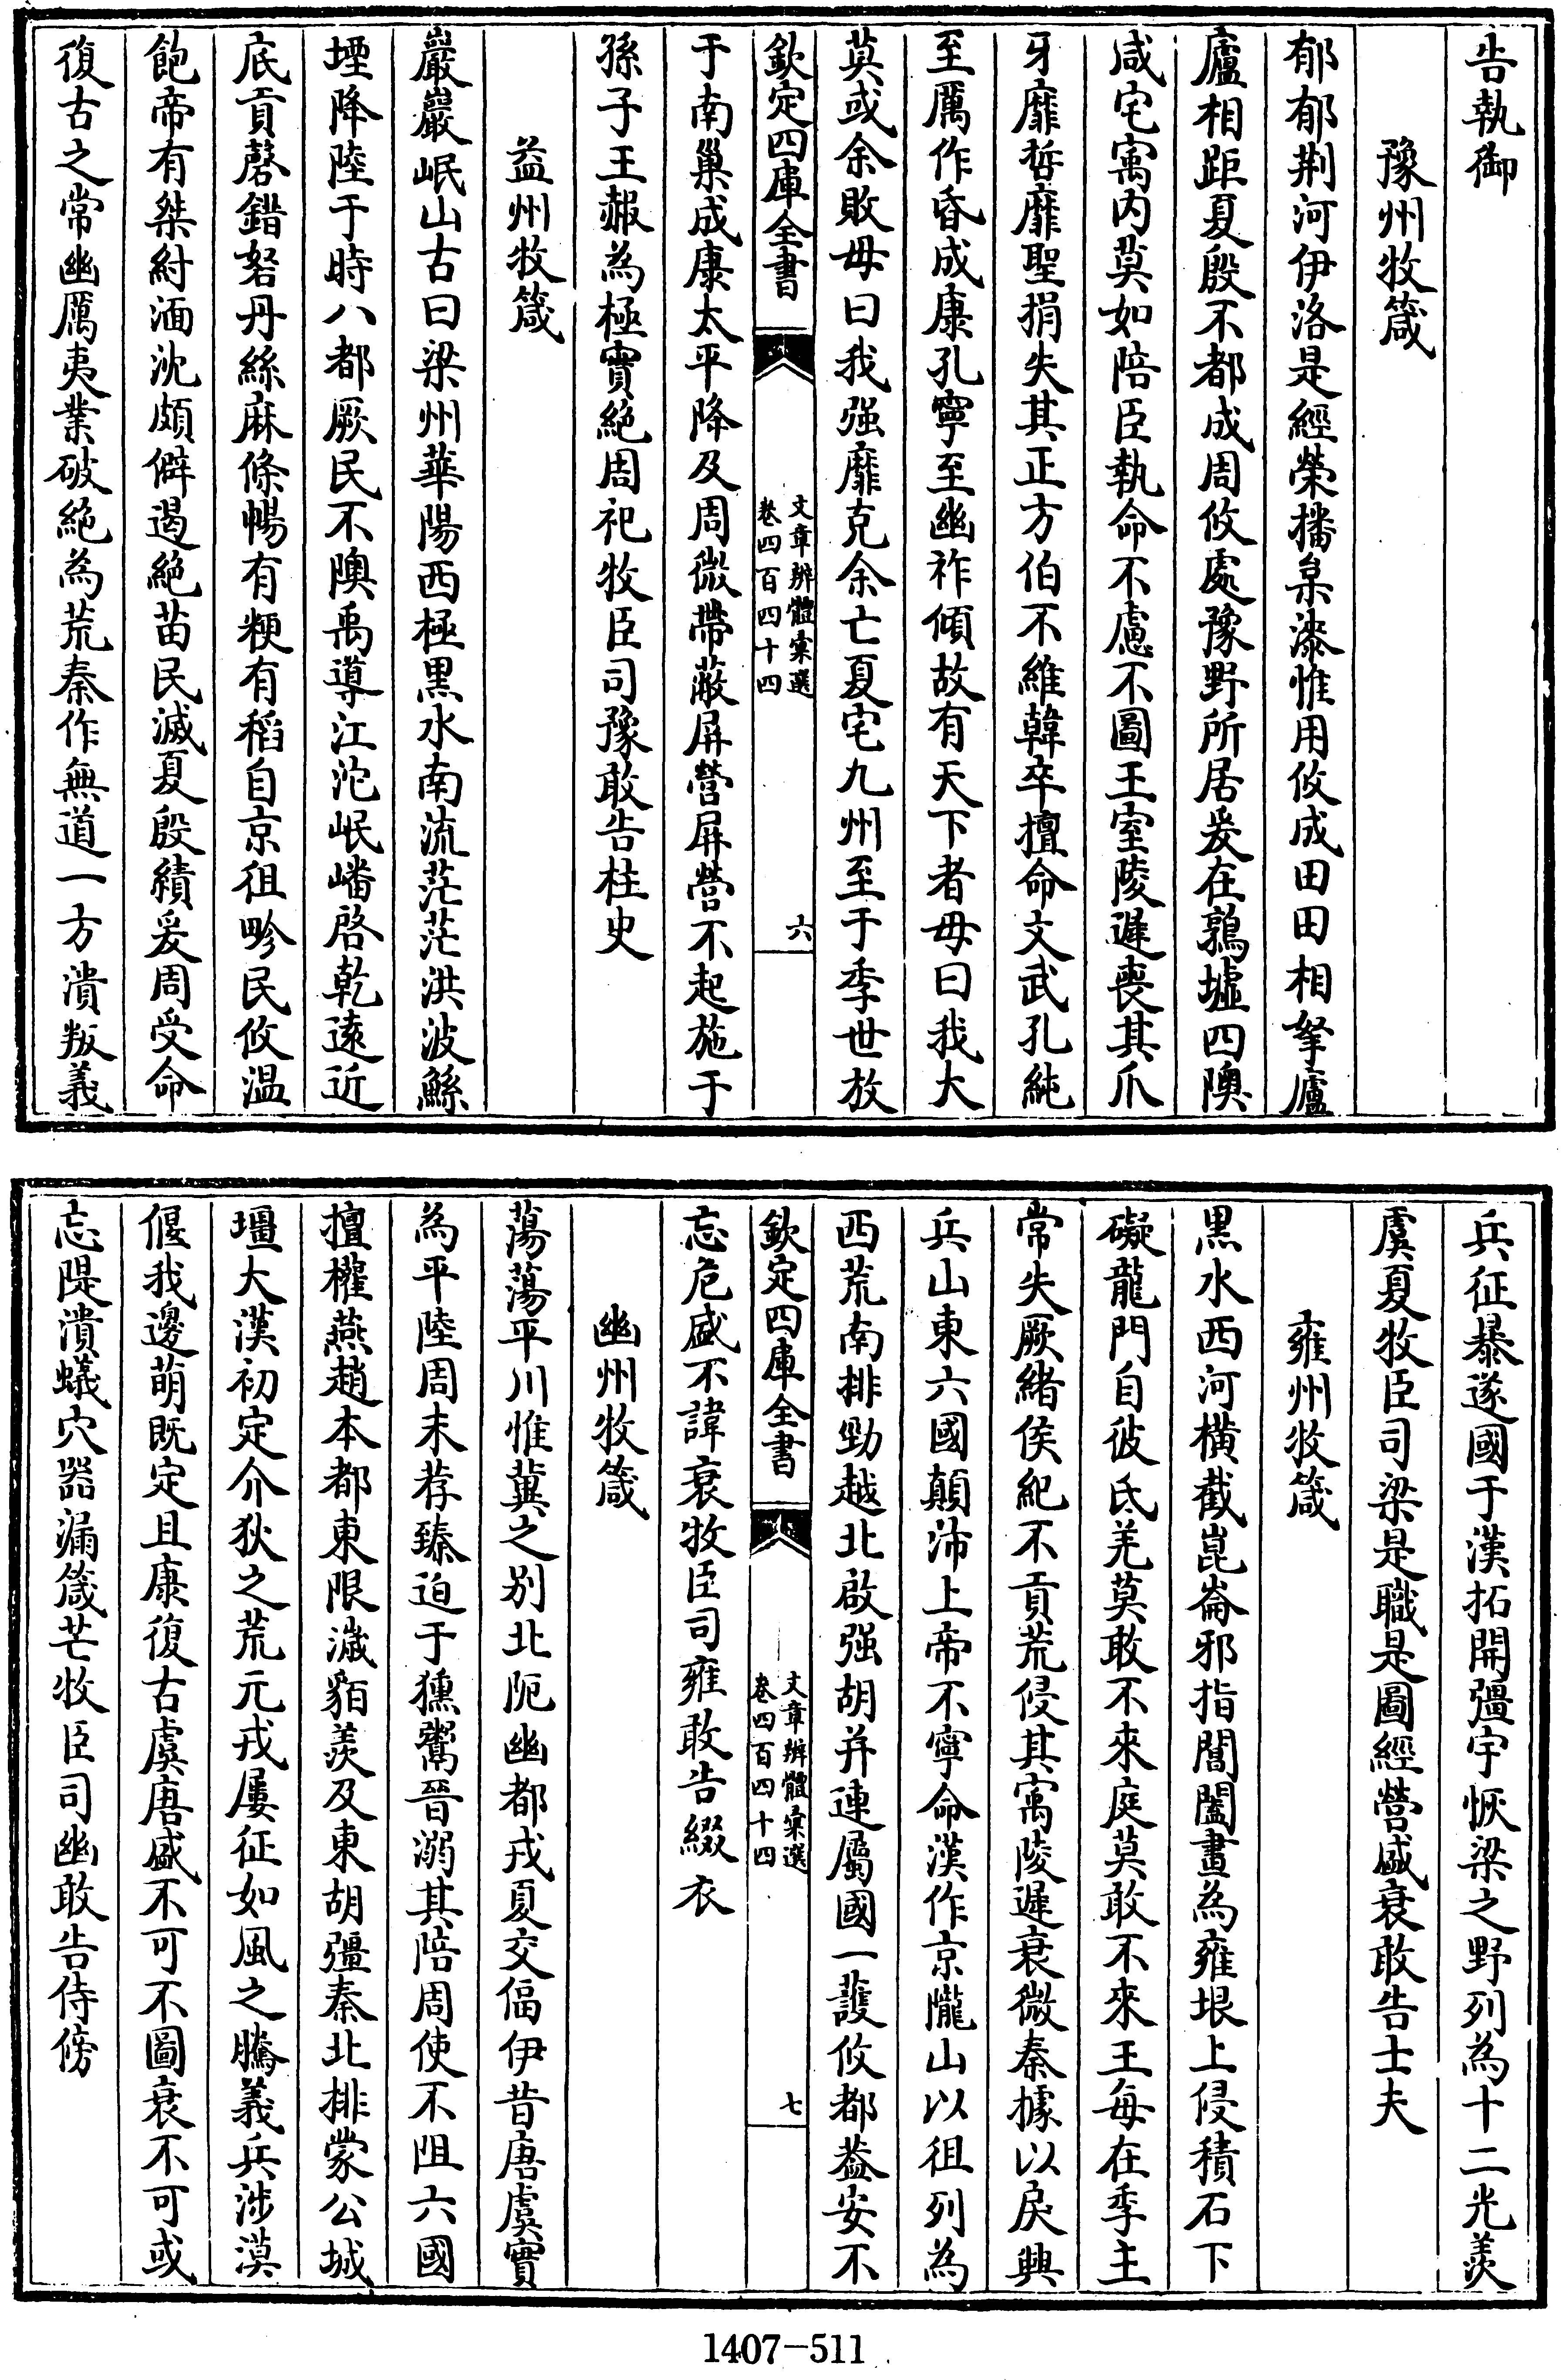 告執御
豫州牧箴
郁郁荆河伊洛是經榮播枲漆惟用攸成田田相拏廬
廬相距夏殷不都成周攸處豫野所居爰在鶉墟四隩
咸宅㝢内莫如陪臣執命不慮不圖王室陵遲喪其爪
牙靡哲靡聖捐失其正方伯不維韓卒擅命文武孔純
至厲作昏成康孔寧至幽祚傾故有天下者毋曰我大
莫或余敗毋曰我强靡克余亡夏宅九州至于季世放
欽定四庫全書
文章辨體彙選
卷四百四十四
六
于南巢成康太平降及周微帶蔽屏營屏營不起施于
孫子王赧為極實絶周祀牧臣司豫敢告柱史
益州牧箴
巖巖岷山古曰梁州華陽西極黒水南流茫茫洪波鯀
堙降陸于時八都厥民不隩禹導江沱岷嶓啓乾逺近
底貢磬錯砮丹絲麻條暢有粳有稻自京徂畛民攸温
飽帝有桀紂湎沈頗僻遏絶苗民滅夏殷績爰周受命
復古之常幽厲夷業破絶為荒秦作無道一方潰叛義
兵征暴遂國于漢拓開疆宇恢梁之野列為十二光羨
虞夏牧臣司梁是職是圖經營盛衰敢告士夫
雍州牧箴
黒水西河橫截崑崙邪指閶闔畫為雍垠上侵積石下
礙龍門自彼氐羌莫敢不來庭莫敢不來王每在季主
常失厥緒侯紀不貢荒侵其㝢陵遲衰微秦據以戾興
兵山東六國顛沛上帝不寧命漢作京隴山以徂列為
西荒南排勁越北啟强胡并連屬國一䕶攸都葢安不
欽定四庫全書
文章辨體彙選
卷四百四十四
七
忘危盛不諱衰牧臣司雍敢告綴衣
幽州牧箴
蕩蕩平川惟冀之别北阨幽都戎夏交偪伊昔唐虞實
為平陸周末荐臻迫于獯鬻晉溺其陪周使不阻六國
擅權燕趙本都東限濊貊羨及東胡彊秦北排蒙公城
壃大漢初定介狄之荒元戎屢征如風之騰義兵涉漠
偃我邊萌既定且康復古虞唐盛不可不圖衰不可或
忘隄潰蟻穴器漏箴芒牧臣司幽敢告侍傍
1407-511